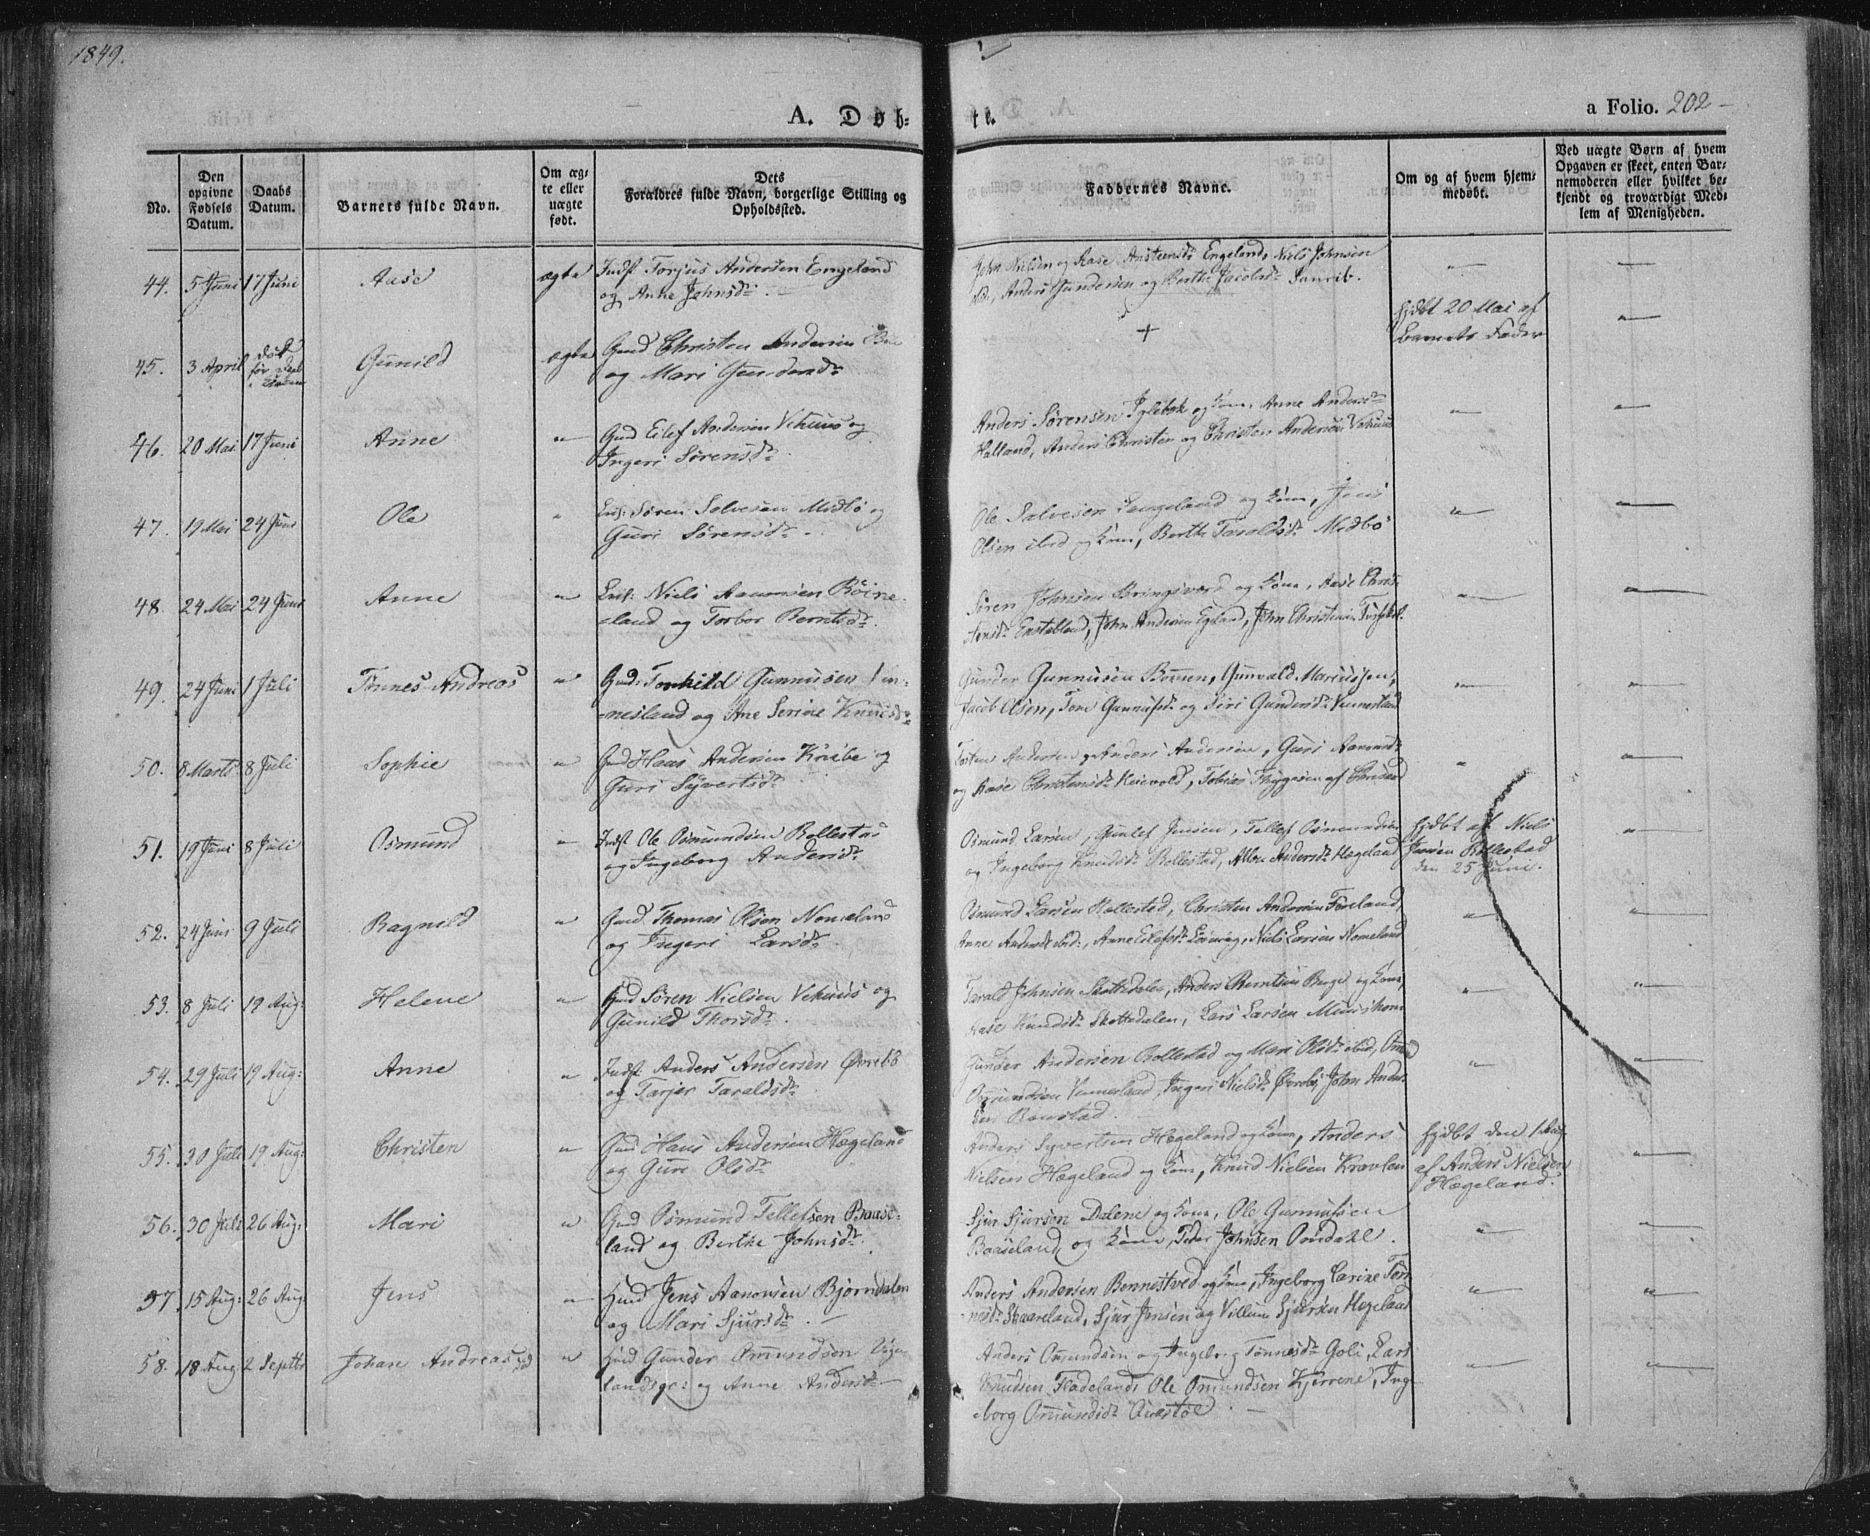 1849.
A. Døb-
te.
a Folio. 202
No.
Den opgivne Fødsels Datum.
Daabs Datum.
Barnets fulde Navn.
Om ægte eller uægte født.
Dets Forældres fulde Navn, borgerlige Stilling og Opholdssted.
Faddernes Navne.
Om og af hvem hjemmedøbt.
Ved uægte Børn af hvem Opgaven er skeet, enten Barnemoderen eller hvilket bekjendt og troværdigt Medlem af Menigheden.
44. 5 Juni 17 Juni Aase ægte Indst Torjus Andersen Engeland
og Anne Johnsdr.
John Nielsen og Aase Anstensdr Engeland, Niels Johnsen
Anders Gundersen og Berthe Jacobsdr
45. 3 April død før Daab Gunild ægte Gmd Christen Andersen
og Mari Gundersdr
+
hjdbt 20 Mai af
Barnets Fader
46. 20 Mai 17 Juni Anne " Gmd Eilef Andersen Vehuus og
Ingeri Sørensdr.
Anders Sørensen Iglebek og Kone, Anne Andersdr
Halland, Anders Christen og Christen Andersen Vehuus
47. 19 Mai 24 Juni Ole " Søren Salvesen Midbø og
Guri Sørensdr.
Ole Salvesen Lengeland og Kone, Jens
Olsen ibid og Kone, Berthe Taraldsdr Midbø
48. 24 Mai 24 Juni Anne " Niels Aanonsen Röine-
land og Torbor Berntsdr.
Sören Johnsen Bringsværd og Kone, Aase Chris-
tensdr Enstabland, John Andersen Egeland, John Christensen
49. 24 Juni 1 Juli Tønnes Andreas " Gmd: Torkild Gunnusen Vin-
nesland og Ane Serine Knudsdr
Gunder Gunnusen Bomen, Gunvald Mariussen,
Jacob Olsen, Tone Gunnufsdr og Siri Gundersdr Vennesland
50. 8 Marts 8 Juli Sophie " Gmd Hans Andersen Kribe og
Guri Syvertsdr
Torsten Andersen, Anders Andersen, Guri Aanonsdr
og Aase Christensdr Keivold, Tobias Thygesen af Chrisand
51. 19 Juni 8 Juli Osmund " Indst Ole Osmundsen Bollestad
og Ingeborg Andersdr
Osmund Larsen, Gunlef Jensen, Tellef Osmundsen
og Ingeborg Knudsdr Bollestad, Andersdr Hægeland
hjdbt af Niels
Jensen Bollestad
den 25 Juni.
52. 24 Juni 9 Juli Ragnild " Gmd Thomas Olsen Nomeland
og Ingeri Larsdr
Osmund Larsen Bollestad, Christen Andersen Föreland,
Anne Andersdr ibid:, Anne Eilefsdr, Niels Larsen Nomeland
53. 8 Juli 19 Aug: Helene " Gmd Sören Nielsen Vehuus og
Gunild Thorsdr.
Tarald Johnsen Skottedalen, Anders Berntsen Berge og Kone,
Aase Knudsdr Skottedalen, Lars Larsen
54. 29 Juli 19 Aug: Anne " Indst Anders Andersen Øvrebö
og Tarjer Taraldsdr
Gunder Andersen Bollestad og Mari Olsdr ibid,
Osmundsen Vennesland, Ingeri Nielsdr Øvrebö, John Ander-
sen Bonstad.
55. 30 Juli 19 Aug: Christen " Gmd Hans Andersen Hægeland
og Guro Olsdr
Anders Syvertsen Hægeland og Kone, Anders
Nielsen Hægeland og Kone, Knud Nielsen Kravlen
hjdbt den 1 Aug
af Anders Nielsen
Hægeland.
56. 30 Juli 26 Aug: Mari " Gmd Osmund Tellefsen Baase-
land og Berthe Johnsdr.
Sjur Sjursen Dalene og Kone, Ole Gunnufsen
Baaseland og Kone, Peder Johnsen Omdahl.
57. 15 Aug: 26 Aug: Jens " Hmd Jens Aanonsen Bjørndalen
og Mari Sjursdr.
Anders Andersen Bennestved og Kone, Ingeborg Carine Tøn-
nesdr Skaareland, Sjur Jensen og Villum Sjursen Hægeland
58. 18 Aug 2 Septbr Johan Andreas " Hmd Gunder Omundsen
landsgr: og Anne Andersdr
Anders Omundsen og Ingeborg Tønnesdr Goli, Lars
Knudsen Fladeland, Ole Omundsen Kjerrene, Inge-
borg Omundsdr